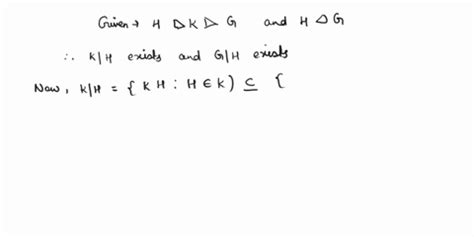 Given → H ▷ K ▷ G and H △ G
∴ K|H exists and G/H exists
Now, K|H = { K H : H ∈ K ) ⊆ {